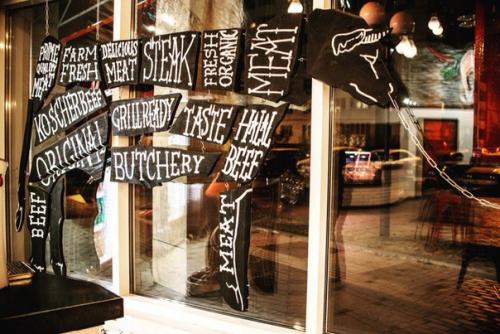 PRIME
QUALITY
MEAT
FARM
FRESH
DELICIOUS
MEAT
STEAK
FRESH
ORGANIC
MEAT
KOSCHERBEEF
GRILLREADY
TASTE
HALAL
BEEF
ORIGINAL
BUTCHERY
BEEF
MEAT